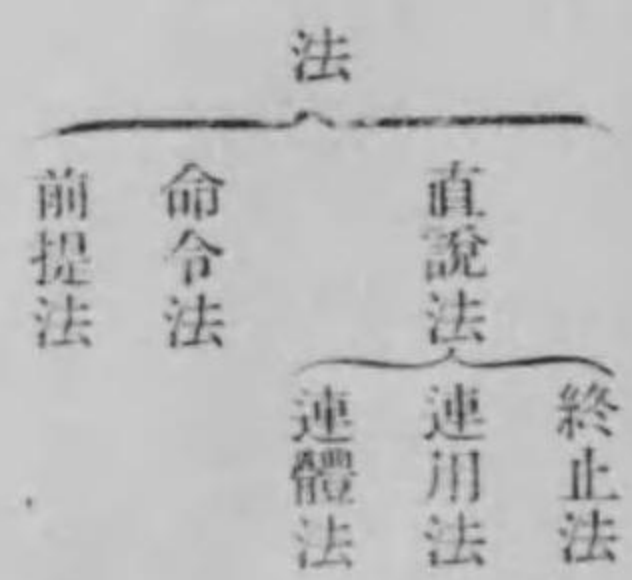 法
直說法
終止法
連用法
連體法
命令法
前提法